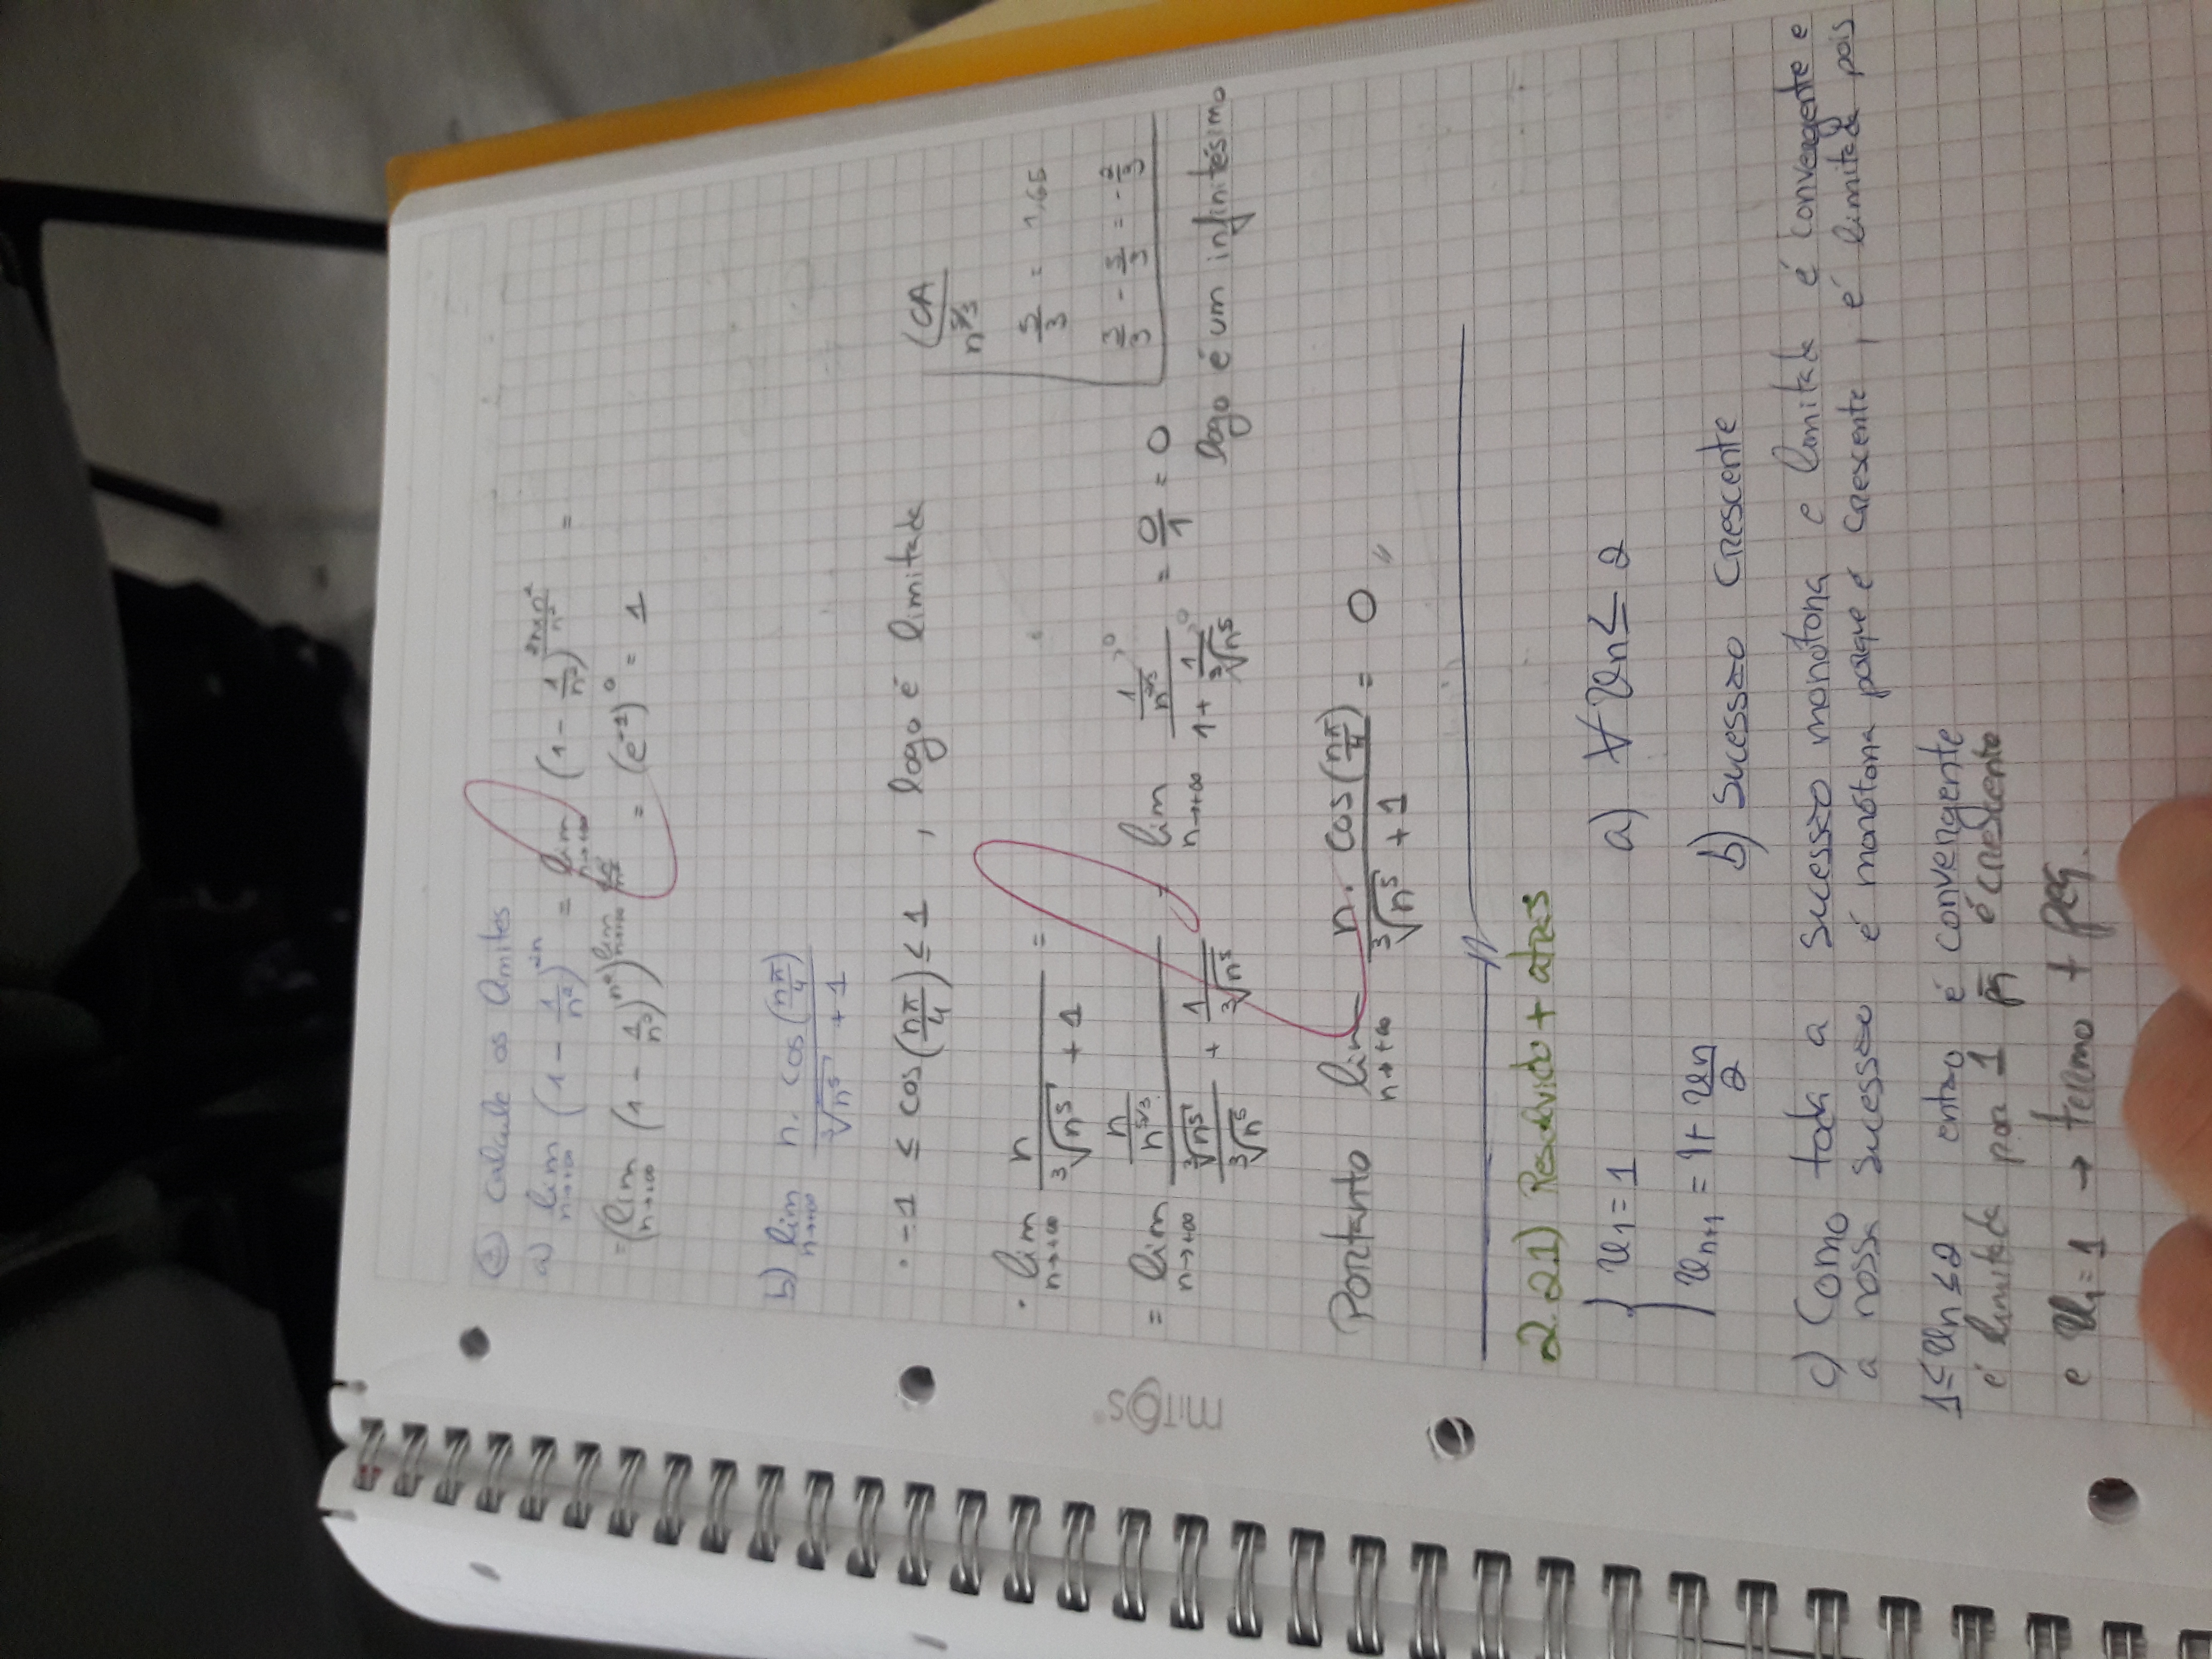 ② Calcule os limites
a) lim n→+∞ (1 - 1/n²)^2n = lim n→+∞ (1 - 1/n²)^(2n×n²/n²) =
= (lim n→+∞ (1 - 1/n²)^n²)^(lim n→+∞ 2n/n²) = (e⁻¹)⁰ = 1
b) lim n→+∞ n. cos(nπ/4) / (³√n⁵ + 1)
· -1 ≤ cos(nπ/4) ≤ 1 , logo é limitada
(CA
n^5/3
5/3 = 1,65
3/3 - 5/3 = -2/3
· lim n→+∞ n / (³√n⁵ + 1) =
= lim n→+∞ (n/n^5/3) / (³√n⁵/³√n⁵ + 1/³√n⁵) = lim n→+∞ (1/n^2/3 →0) / (1 + 1/³√n⁵ →0) = 0/1 = 0
logo é um infinitésimo
Portanto lim n→+∞ n. cos(nπ/4) / (³√n⁵ + 1) = 0 //
mitos®
2.21) Resolvido + atrás
{ u₁ = 1
a) ∀ un ≤ 2
un+1 = 1+ un/2
b) Sucessão Crescente
c) Como toda a sucessão monótona e limitada é convergente e
a nossa sucessão é monótona porque é crescente, é limitada pois
1 ≤ un ≤ 2 então é convergente
é limitada por 1 pq é crescente
e u₁ = 1 → termo + peq.